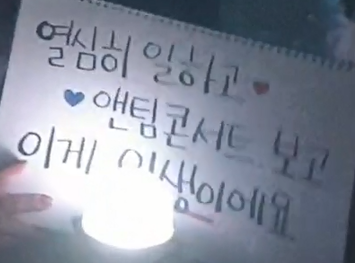 열심히 일하고
앤팀콘서트 보고
이게 인생이에요